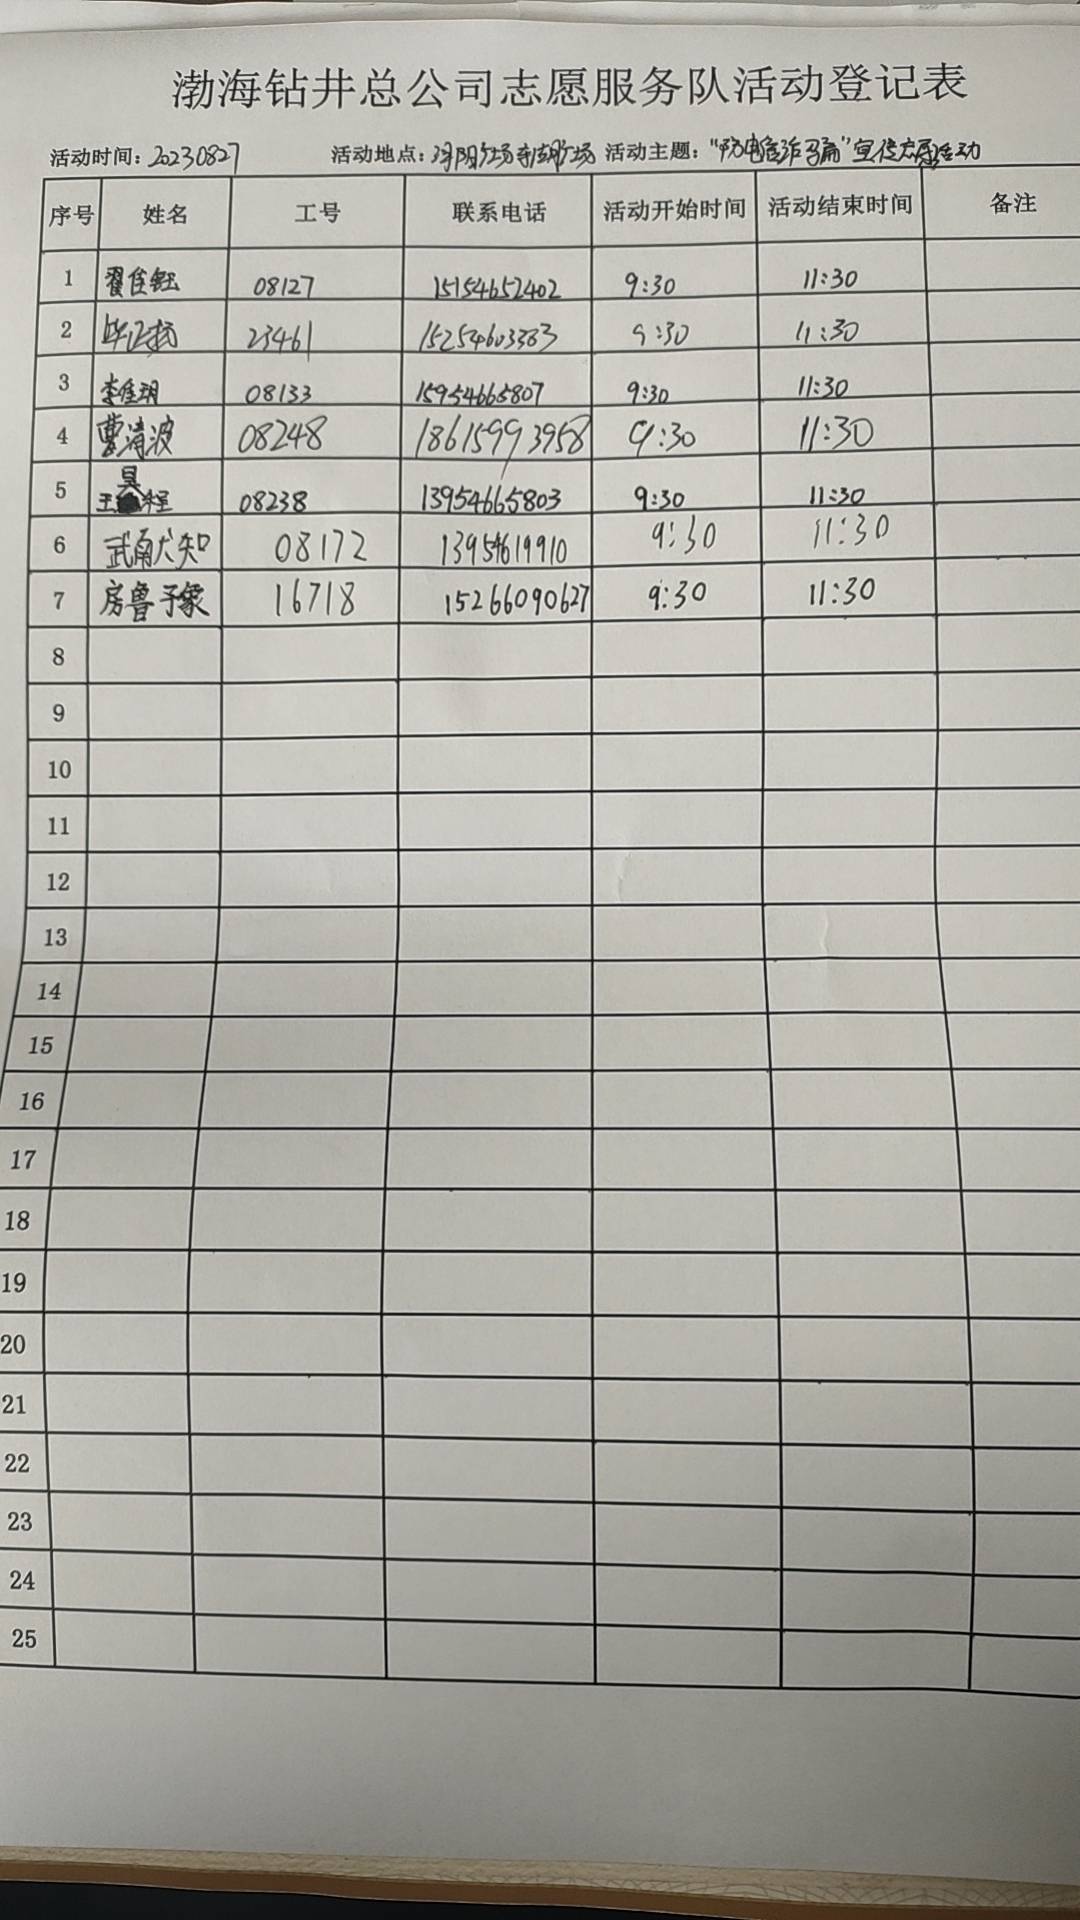 渤海钻井总公司志愿服务队活动登记表
活动时间：20230827 活动地点： 活动主题：“防电信诈骗”宣传志愿活动
序号 姓名 工号 联系电话 活动开始时间 活动结束时间 备注
1 翟佳钰 08127 15154652402 9:30 11:30
2 23461 15254603383 9:30 11:30
3 李佳玥 08133 15954665807 9:30 11:30
4 曹清波 08248 18615993958 9:30 11:30
5 王昊程 08238 13954665803 9:30 11:30
6 08172 13954619910 9:30 11:30
7 房鲁子豪 16718 15266090627 9:30 11:30
8
9
10
11
12
13
14
15
16
17
18
19
20
21
22
23
24
25